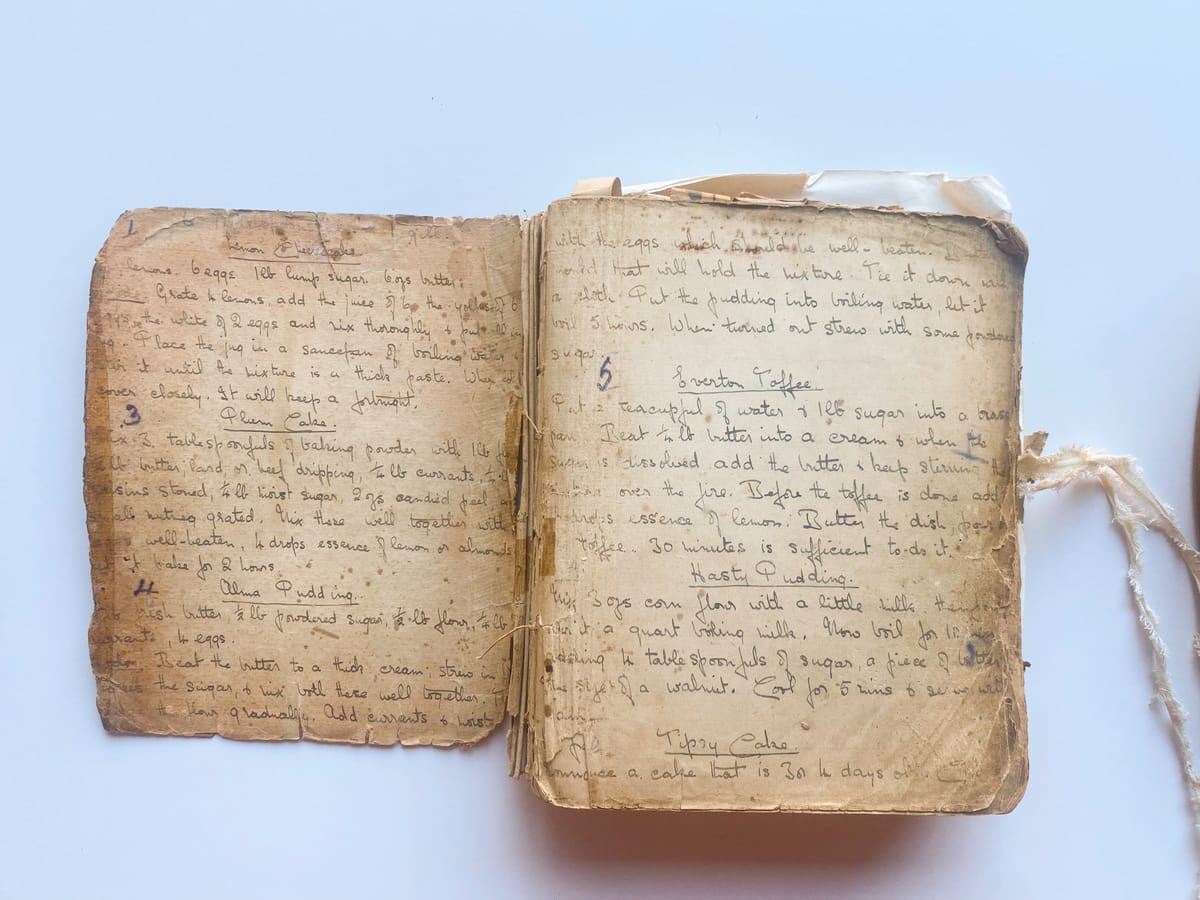 1
Lemon Cheesecake
lemons. 6 eggs 1lb lump sugar. 6 ozs butter.
Grate 4 lemons, add the juice of 6 the yolks of 6
the white of 2 eggs and mix thoroughly & put
Place the jug in a saucepan of boiling water &
it until the mixture is a thick paste. When
cover closely. It will keep a fortnight.
3
Plum Cake.
3 tablespoonfuls of baking powder with 1lb
butter, lard, or beef dripping, ¼ lb currants,
stoned, ¼ lb moist sugar, 2 ozs candied peel
small nutmeg grated. Mix these well together with
well-beaten, 4 drops essence of lemon or almonds
bake for 2 hours.
4
Alma Pudding.
fresh butter, ½ lb powdered sugar, ½ lb flour, ¼ lb
currants, 4 eggs.
Beat the butter to a thick cream, strew in
the sugar, & mix both these well together,
the flour gradually. Add currants & moist
with the eggs which should be well-beaten.
mould that will hold the mixture. Tie it down
a cloth. Put the pudding into boiling water, let it
boil 5 hours. When turned out strew with some powdered
sugar
5
Everton Toffee.
Put a teacupful of water & 1lb sugar into a brass
pan. Beat ¼ lb butter into a cream & when the
sugar is dissolved add the butter & keep stirring the
mixture over the fire. Before the toffee is done add
drops essence of lemon. Butter the dish, pour
toffee. 30 minutes is sufficient to do it.
Hasty Pudding.
Mix 3 ozs corn flour with a little milk, then
it a quart boiling milk. Now boil for
adding 4 tablespoonfuls of sugar, a piece of butter
the size of a walnut. Cool for 5 mins & serve with
jam
Tipsy Cake.
a cake that is 3 or 4 days old.